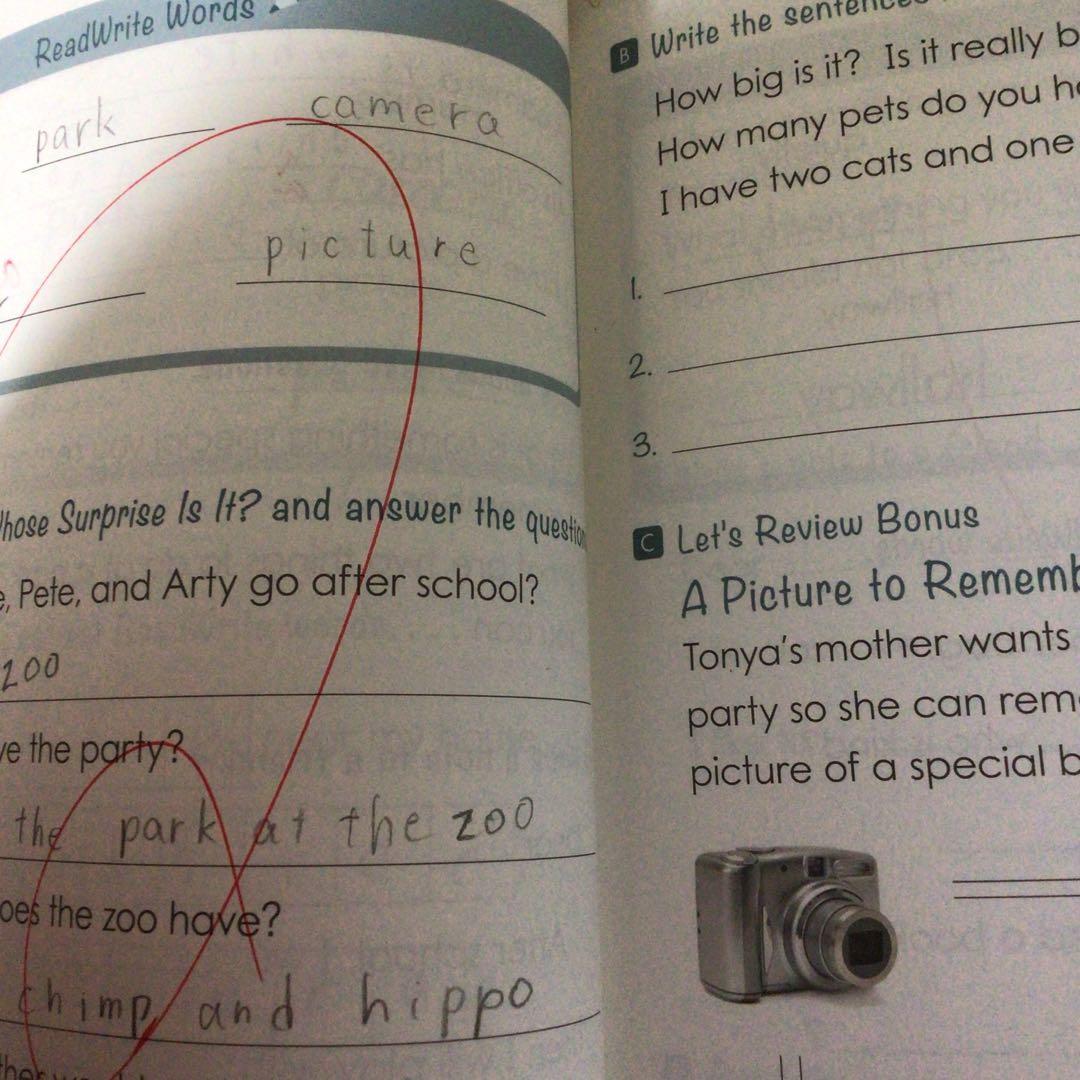 ReadWrite Words
park camera
picture
Surprise Is It? and answer the
Pete, and Arty go after school?
zoo
the party?
the park at the zoo
the zoo have?
chimp and hippo
B Write the
How big is it? Is it really
How many pets do you
I have two cats and one
1.
2.
3.
C Let's Review Bonus
A Picture to
Tonya's mother wants
party so she can
picture of a special